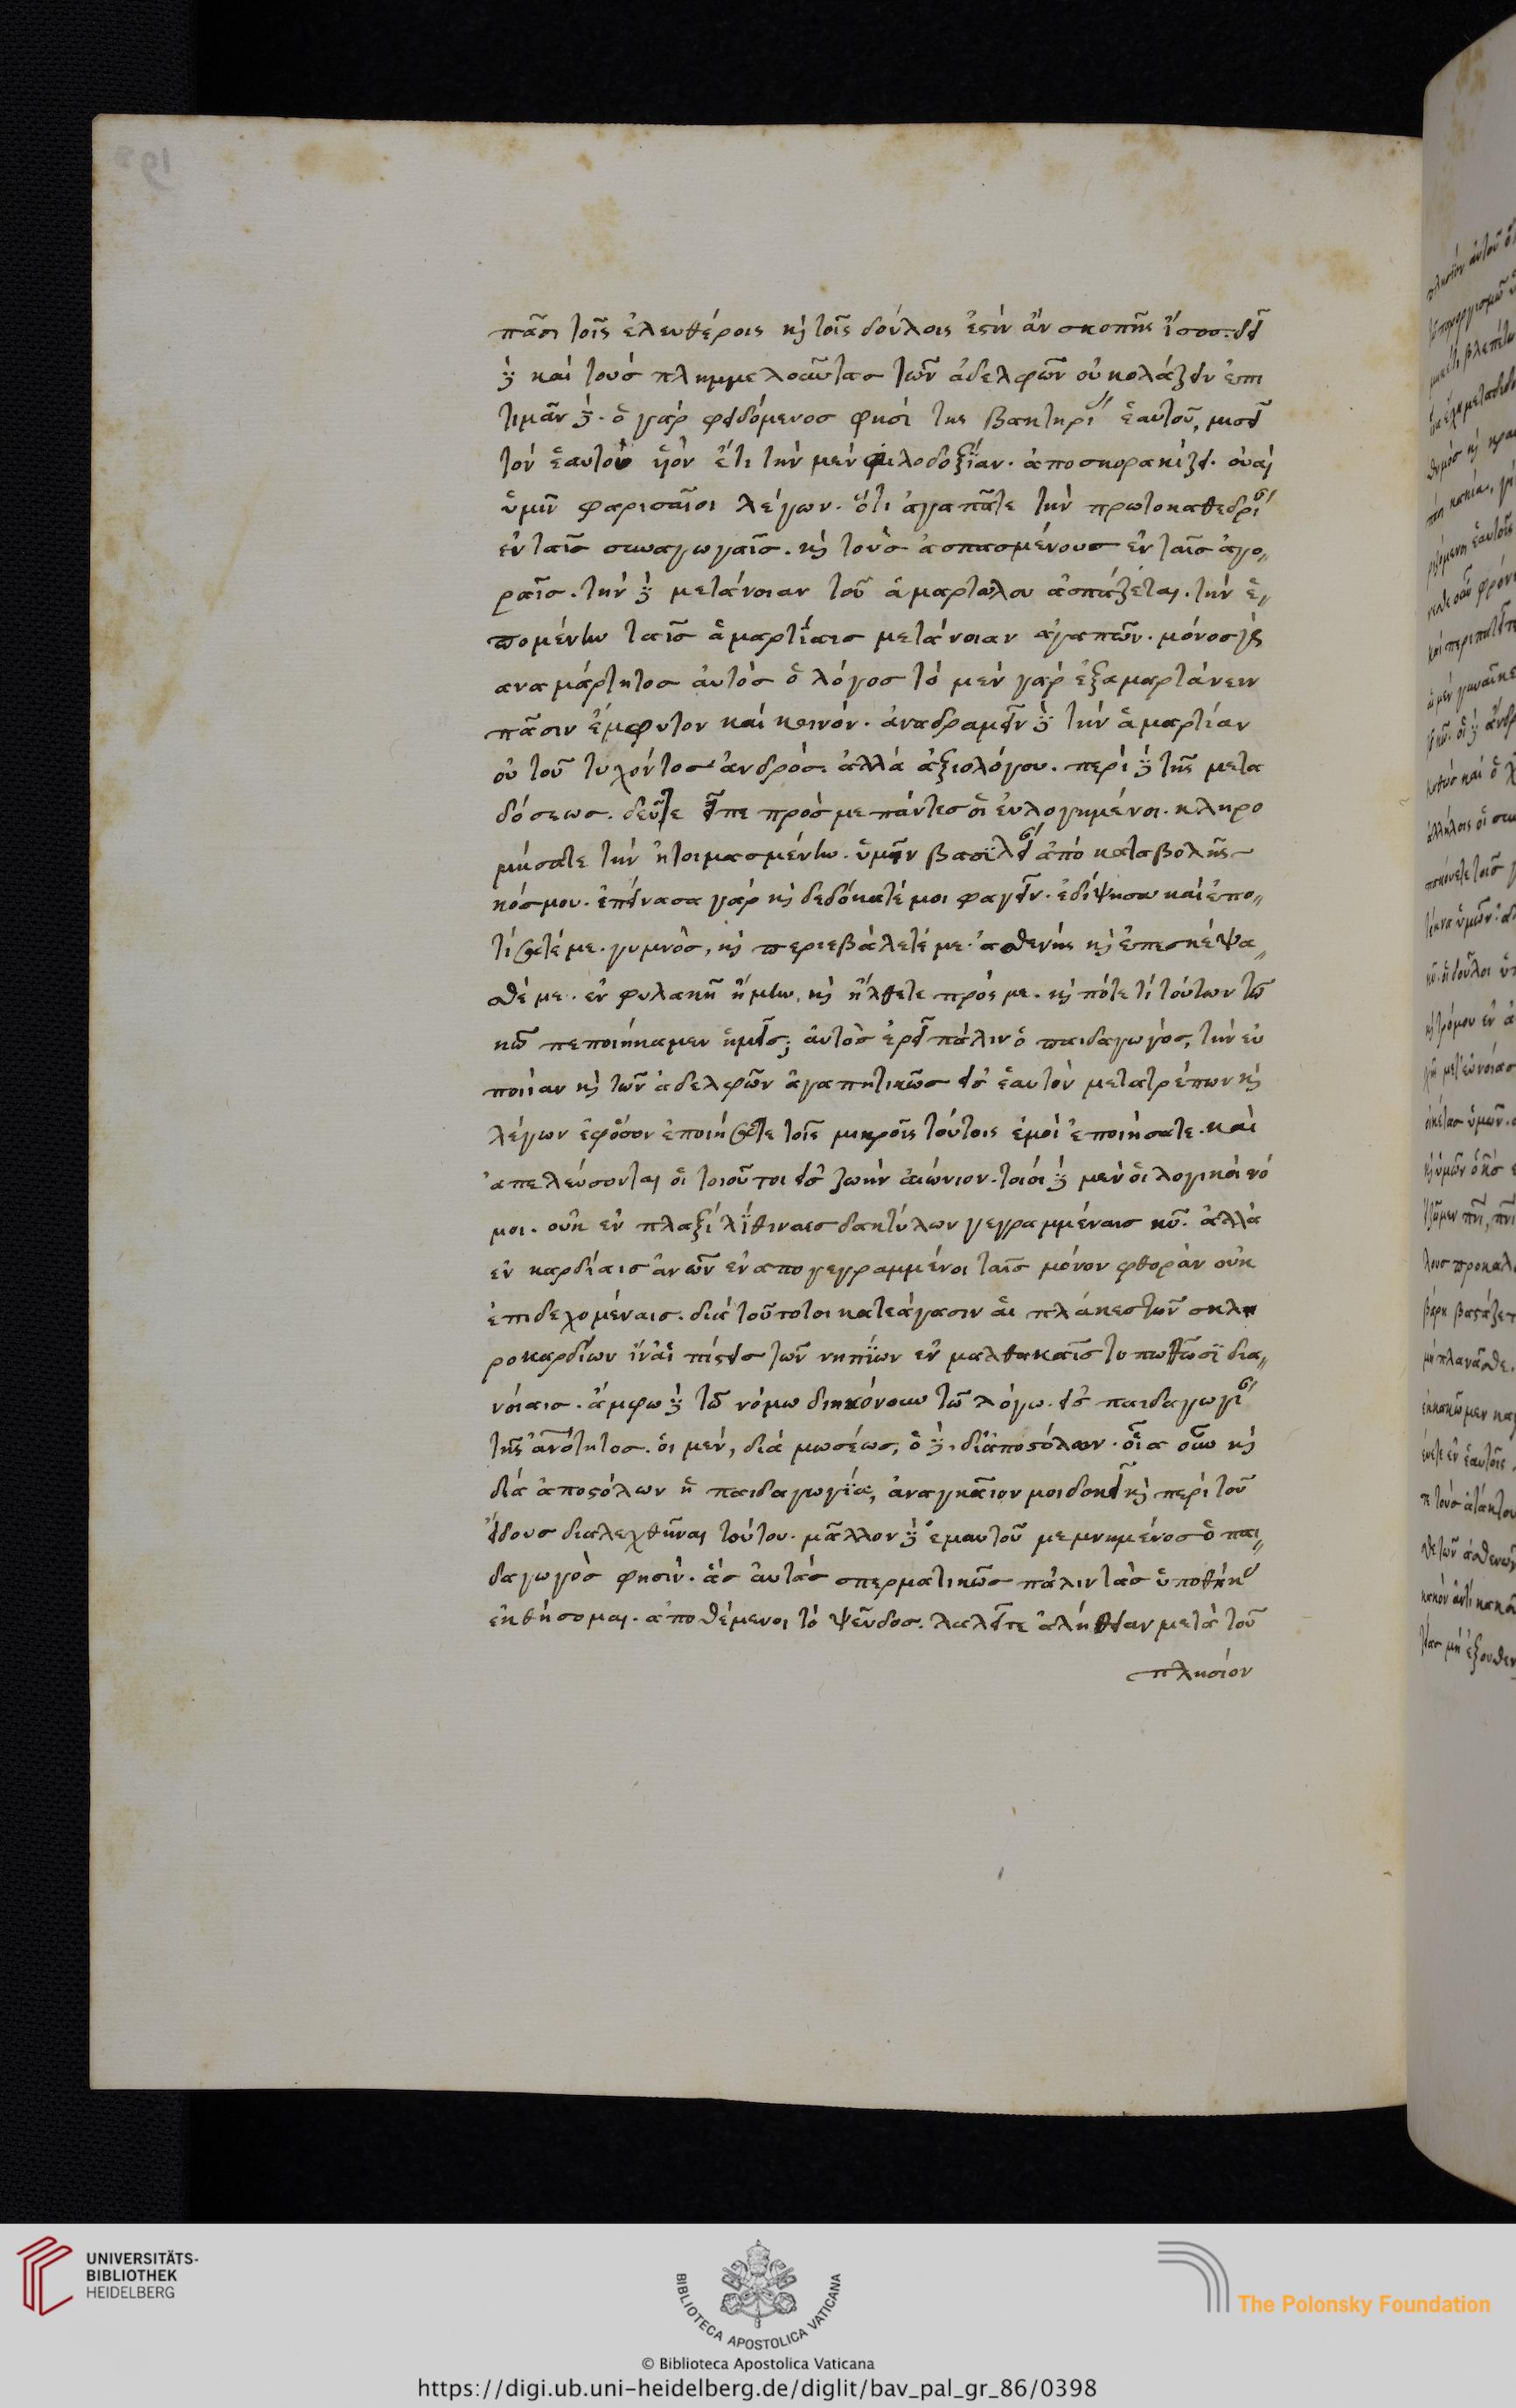 πᾶσι τοῖς ἐλευθέροις κ̀ τοῖς δούλοις ἐστὶν ἂν σκοπῆς ἴσοσ. δεῖ
δὲ καὶ τοὺσ πλημμελοῦντασ τῶν ἀδελφῶν οὐ κολάζειν ἐπι
τιμᾶν δέ. ὁ γὰρ φειδόμενοσ φησὶ της βακτηρί ἑαυτοῦ, μισεῖ
τὸν ἑαυτοῦ ϋὸν ἔτι τὴν μὲν φιλοδοξΐαν. ἀποσκορακίζει. οὐαὶ
ὑμῖν φαρισαῖοι λέγων. ὅτι ἀγαπᾶτε τὴν πρωτοκαθεδρί
ἐν ταῖσ συναγωγαῖσ. κ̀ τοὺσ ἀσπασμένουσ ἐν ταῖσ ἀγο„
ραῖσ. τὴν δὲ μετάνοιαν τοῦ ἁμαρτωλου ἀσπάζεται. τὴν ἑ„
πομένην ταῖσ ἁμαρτΐαισ μετάνοιαν ἀγαπῶν. μόνοσ γὰρ
αναμάρτητοσ ἀυτὸσ ὁ λόγοσ τὸ μὲν γὰρ ἐξαμαρτάνειν
πᾶσιν ἔμφυτον καὶ κοινόν. ἀναδραμεῖν δὲ τὴν ἁμαρτίαν
οὐ τοῦ τυχόντοσ ἀνδρόσ. ἀλλὰ ἀξιολόγου. περὶ δὲ τῆς μετα
δόσεωσ. δεῦτε εἶπε πρόσ με πάντεσ ὁι ἐυλογημένοι. κληρο
μήσατε τὴν ἡτοιμασμένην. ὑμῖν βασϊλεί ἀπὸ καταβολῆς
κόσμου. ἐπείνασα γὰρ κ̀ δεδόκατέ μοι φαγεῖν. ἐδίψησα καὶ ἐπο„
τίσατέ με. γυμνὸσ, κ̀ περιεβάλετέ με. ἀσθενής κ̀ ἐπεσκέψα„
σθέ με. ἐν φυλακῆ ἤμην, κ̀ ἤλθετε πρός με. κ̀ πότε τί τούτων τῶ
κῶ πεποιήκαμεν ἡμεῖς; ἀυτὸσ ἐρεῖ πάλιν ὁ παιδαγωγόσ, τὴν εὐ
ποιΐαν κ̀ τῶν ἀδελφῶν ἀγαπητικῶσ εἰσ ἑαυτὸν μετατρέπων κ̀
λέγων ἐφόσον ἐποιήσατε τοῖς μικροῖς τούτοις ἐμοὶ ἐποιήσατε. καὶ
ἀπελεύσονται ὁι τοιοῦτοι εἰσ ζωὴν αἰώνιον. τοιόι δὲ μὲν ὁι λογικὸι νό
μοι. οὐκ ἐν πλαξὶ λΐθιναισ δακτύλων γεγραμμέναισ κῦ. ἀλλὰ
ἐν καρδίαισ ἀνῶν ἐναπογεγραμμένοι ταῖσ μόνον φθορὰν οὐκ
ἐπιδεχομέναισ. διὰ τοῦτο τοι κατεάγασιν ἁι πλάκεσ τῶν σκλη
ροκαρδίων ἵν' ἁι πίστεισ τῶν νηπΐων ἐν μαλθακαῖσ τυπωθῶσϊ δια„
νόιαισ. ἄμφω δὲ τῶ νόμω διηκόνουν τῶ λόγω. εἰσ παιδαγωγί
τῆς ἀνότητοσ. ὁι μὲν, διὰ μωσέωσ, ὁ δὲ. δι' ἀποστόλων. οἵα οὖν κ̀
διὰ ἀποστόλων ἡ παιδαγωγΐα, ἀναγκαῖον μοι δοκεῖ κ̀ περὶ τοῦ
εἴδουσ διαλεχθῆναι τούτου. μᾶλλον δὲ ἐμαυτοῦ μεμνημένοσ ὁ παι„
δαγωγὸσ φησιν. ἃσ ἀυτὰσ σπερματικῶσ πάλιν τὰσ ὑποθήκ
ἐκθήσομαι. ἀποθέμενοι τὸ ψεῦδοσ. λαλεῖτε ἀλήθειαν μετὰ τοῦ
πλησίον
UNIVERSITÄTS-
BIBLIOTHEK
HEIDELBERG
BIBLIOTECA APOSTOLICA VATICANA
The Polonsky Foundation
© Biblioteca Apostolica Vaticana
https://digi.ub.uni-heidelberg.de/diglit/bav_pal_gr_86/0398